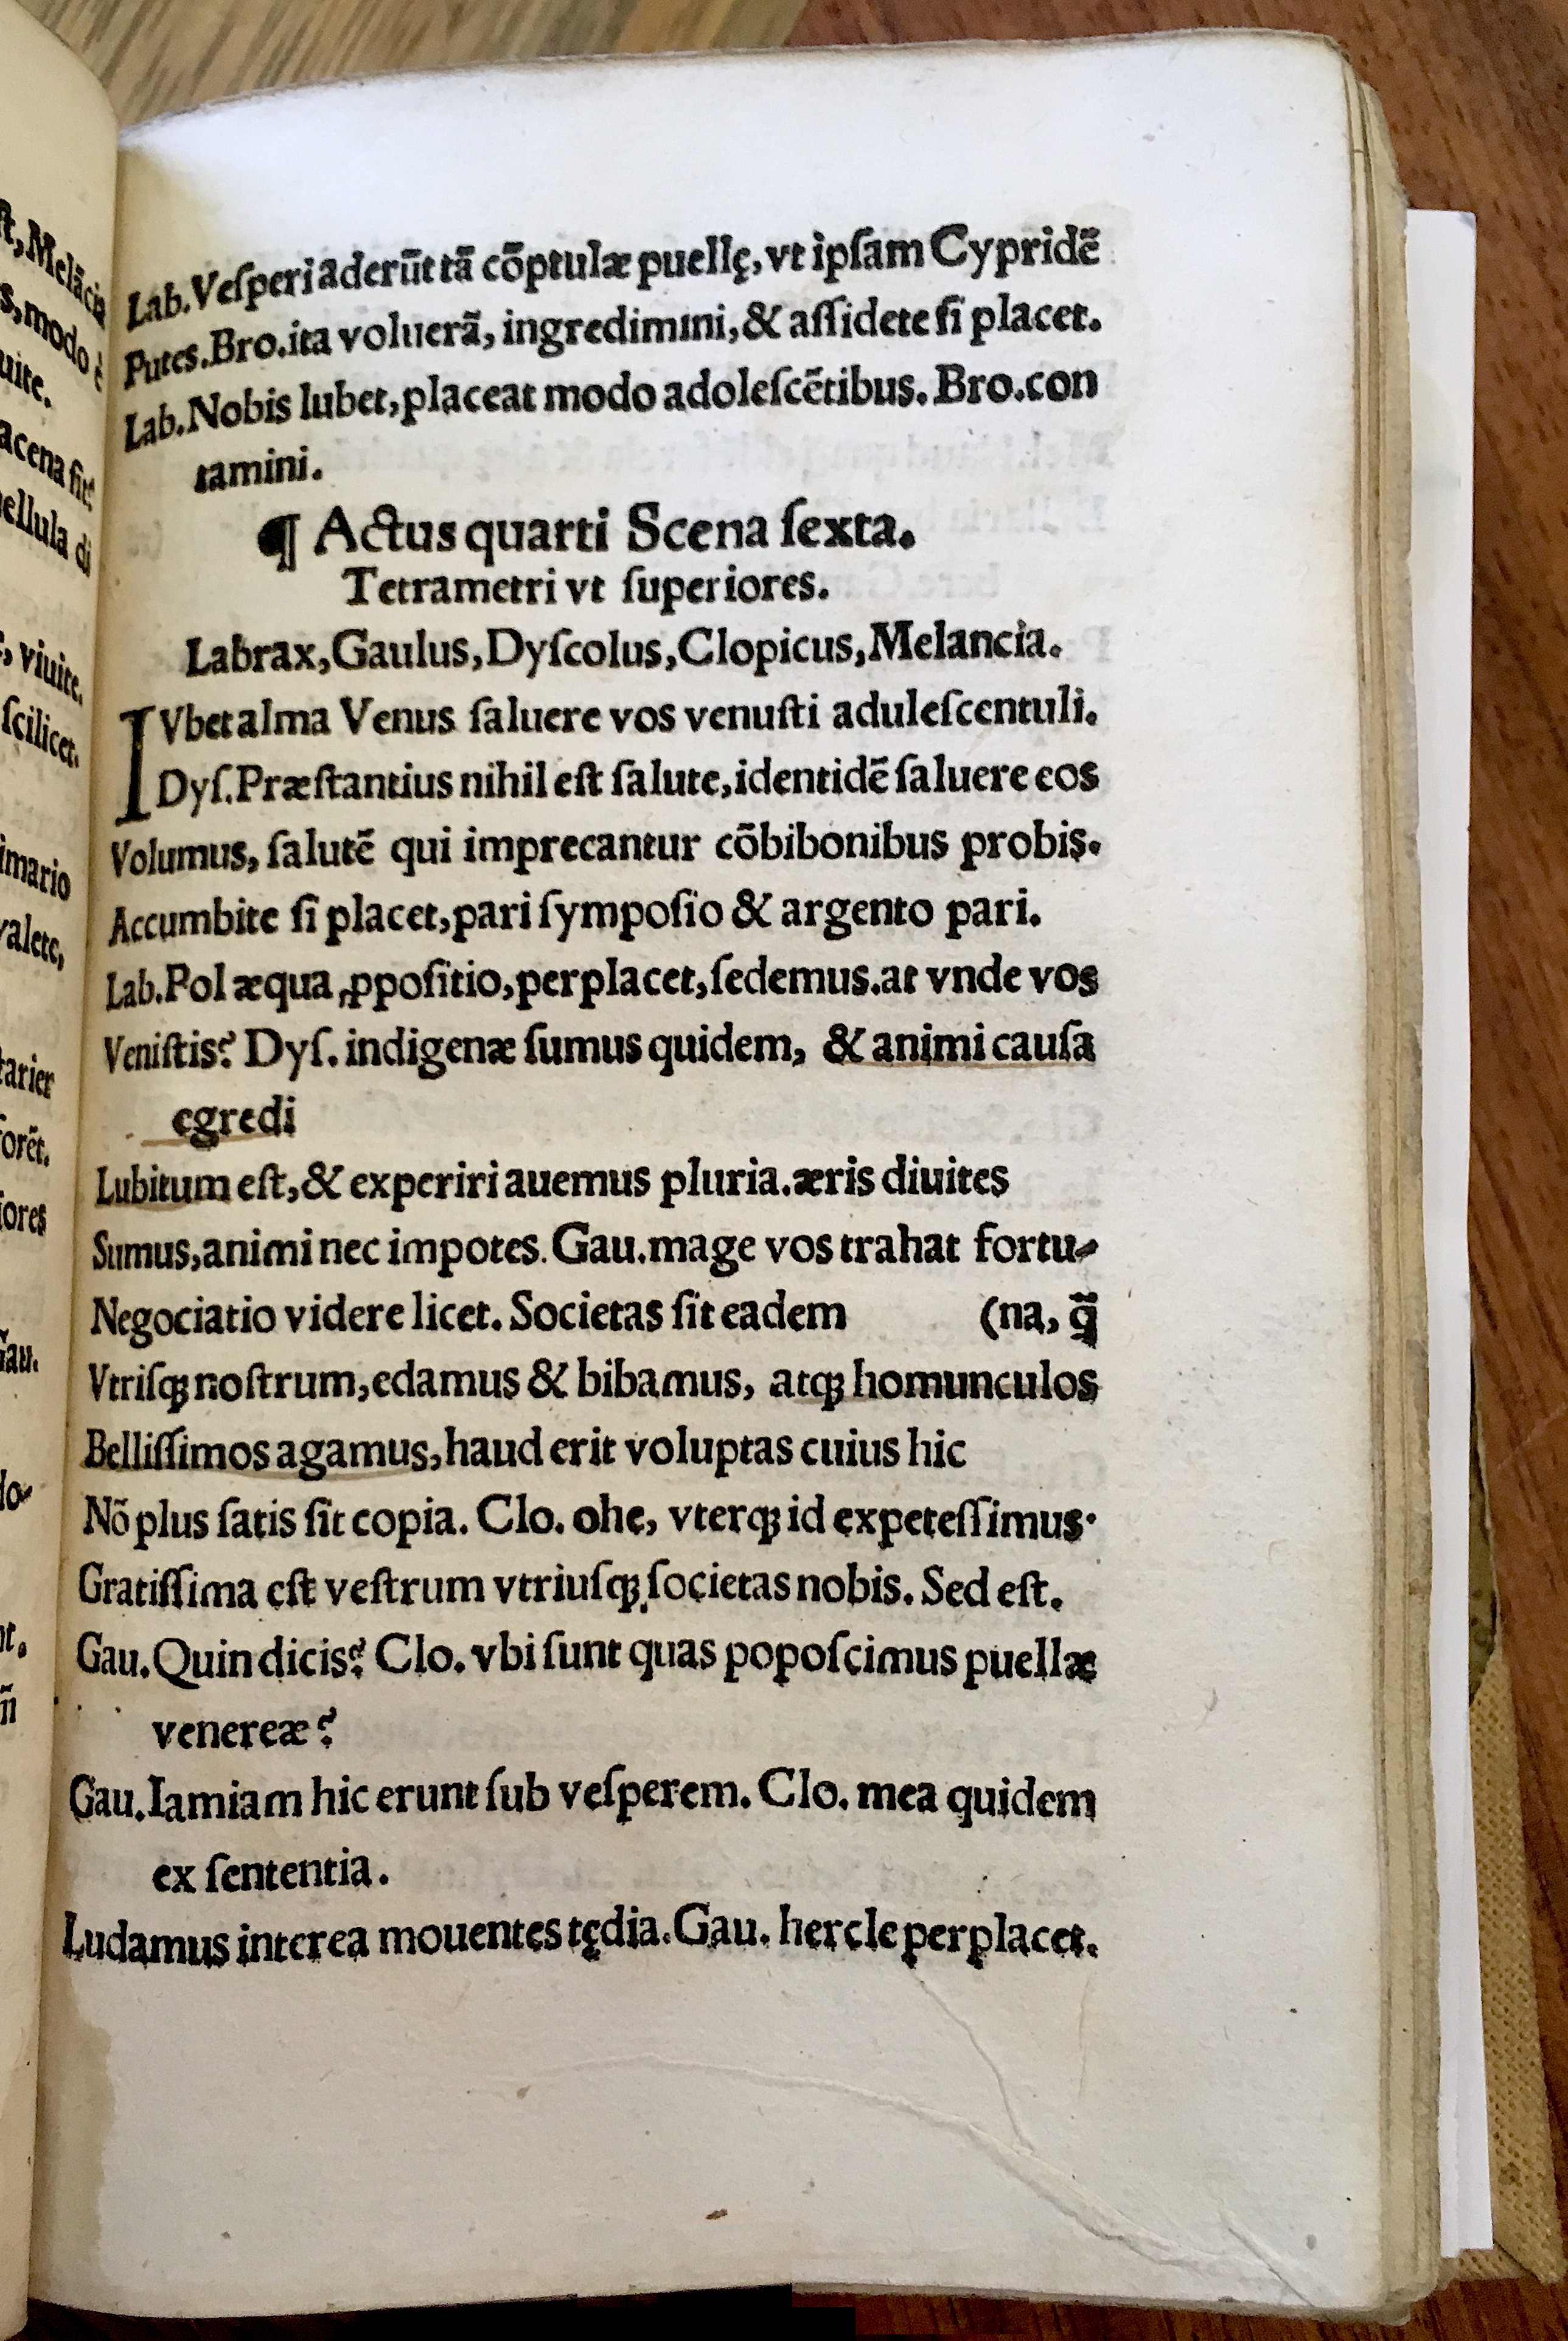 Lab.Veſperi aderūt tā cōptulæ puellę, vt ipſam Cypridē
Putes.Bro.ita voluerā, ingredimini, & aſſidete ſi placet.
Lab.Nobis lubet, placeat modo adoleſcētibus. Bro.con
tamini.
¶ Actus quarti Scena ſexta.
Tetrametri vt ſuperiores.
Labrax, Gaulus, Dyſcolus, Clopicus, Melancia.
IVbet alma Venus ſaluere vos venuſti aduleſcentuli.
Dyſ.Præſtantius nihil eſt ſalute, identidē ſaluere eos
Volumus, ſalutē qui imprecantur cōbibonibus probis.
Accumbite ſi placet, pari ſympoſio & argento pari.
Lab.Pol æqua ꝓpoſitio, perplacet, ſedemus.at vnde vos
Veniſtis? Dyſ. indigenæ ſumus quidem, & animi cauſa
egredi
Lubitum eſt, & experiri auemus pluria.æris diuites
Sumus, animi nec impotes. Gau.mage vos trahat fortu-
Negociatio videre licet. Societas ſit eadem (na, q̄
Vtriſqꝫ noſtrum, edamus & bibamus, atqꝫ homunculos
Belliſſimos agamus, haud erit voluptas cuius hic
Nō plus ſatis ſit copia. Clo. ohe, vterqꝫ id expeteſſimus.
Gratiſſima eſt veſtrum vtriuſqꝫ ſocietas nobis. Sed eſt.
Gau.Quin dicis? Clo. vbi ſunt quas popoſcimus puellæ
venereæ?
Gau.Iamiam hic erunt ſub veſperem. Clo. mea quidem
ex ſententia.
Ludamus interea mouentes tędia.Gau. hercle perplacet.